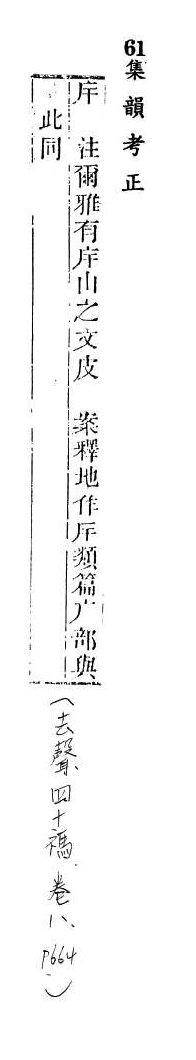 61集韻考正
庌 注爾雅有庌山之文皮 案釋地作厈類篇广部與
此同
(去聲、四十禡、卷八、P664)